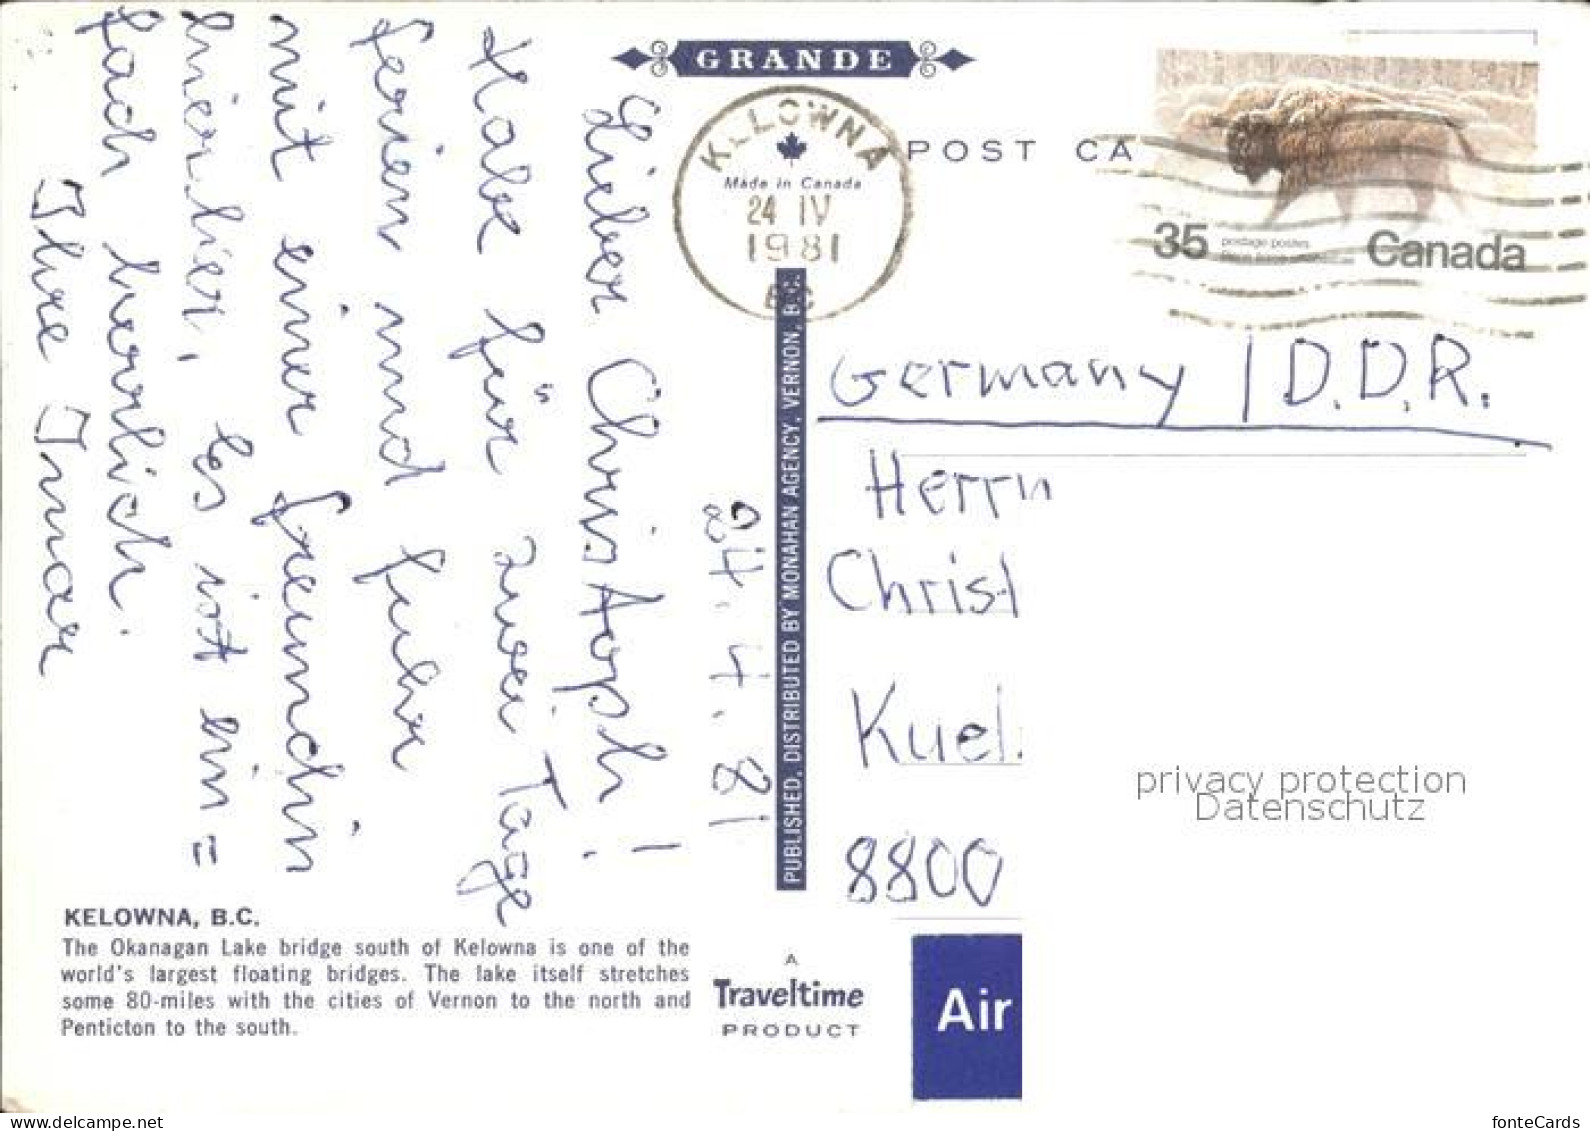 GRANDE
POST CA
KELOWNA
Made in Canada
24 IV
1981
BC
35 postage postes
Canada
24.4.81
Lieber Christoph!
Habe für zwei Tage
ferien und fuhr
mit einer freundin
hierhier, es ist ein=
fach herrlich.
Ihre Irmar
PUBLISHED, DISTRIBUTED BY MONAHAN AGENCY, VERNON, B.C.
Germany / D.D.R.
Herrn
Christ
Kuel
8800
privacy protection
Datenschutz
KELOWNA, B.C.
The Okanagan Lake bridge south of Kelowna is one of the
world's largest floating bridges. The lake itself stretches
some 80-miles with the cities of Vernon to the north and
Penticton to the south.
A
Traveltime
PRODUCT
Air
www.delcampe.net
fonteCards